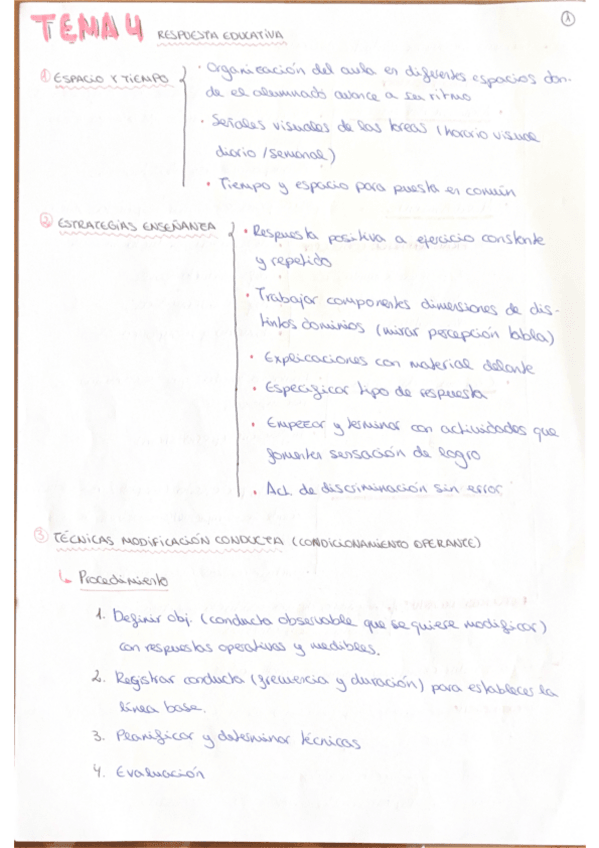 TEMA 4 RESPUESTA EDUCATIVA
1
① ESPACIO Y TIEMPO
· Organización del aula en diferentes espacios don-
de el alumnado avance a su ritmo
· Señales visuales de las tareas (horario visual
diario / semanal)
· Tiempo y espacio para puesta en común
② ESTRATEGIAS ENSEÑANZA
· Respuesta positiva a ejercicio constante
y repetido
· Trabajar componentes dimensiones de dis-
tintos dominios (mirar percepción tabla)
· Explicaciones con material delante
· Especificar tipo de respuesta
· Empezar y terminar con actividades que
fomenten sensación de logro
· Act. de discriminación sin error
③ TÉCNICAS MODIFICACIÓN CONDUCTA (CONDICIONAMIENTO OPERANTE)
↳ Procedimiento
1. Definir obj. (conducta observable que se quiere modificar)
con respuestas operativas y medibles.
2. Registrar conducta (frecuencia y duración) para establecer la
línea base.
3. Planificar y determinar técnicas
4. Evaluación